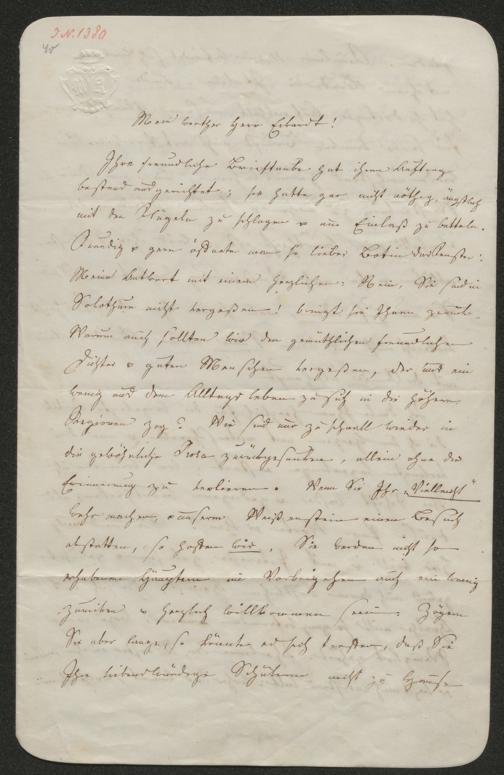 J.N. 1380
Mein werther Herr Eckardt!
Ihre freundliche Brieftaube hat ihren Auftrag
bestens ausgerichtet; sie hatte gar nicht nöthig, ängstlich
mit den Flügeln zu schlagen & um Einlaß zu betteln.
Freudig & gern öffnete man so lieber Botin das Fenster.
Meine Antwort mit einem herzlichen: Nein, Sie sind in
Solothurn nicht vergessen! bringt sie Ihnen zurück.
Warum auch sollten wir den gemüthlichen freundlichen
Dichter & guten Menschen vergessen, der uns ein
wenig aus dem Alltagsleben zu sich in die höhern
Regionen zog? Wir sind nur zu schnell wieder in
die gewöhnliche Prosa zurückgesunken, allein ohne die
Erinnerung zu verlieren. Wenn Sie Ihr „Vielleicht"
wahr machen, & unserm Weißenstein einen Besuch
abstatten, so hoffen wir, Sie werden nicht so
erhabenen Hauptes im Vorbeigehen auch ein wenig
& herzlich willkommen sein. Zögern
Sie aber lange, so könnte es sich treffen, daß Sie
Ihre liebenswürdige Schülerin nicht zu Hause